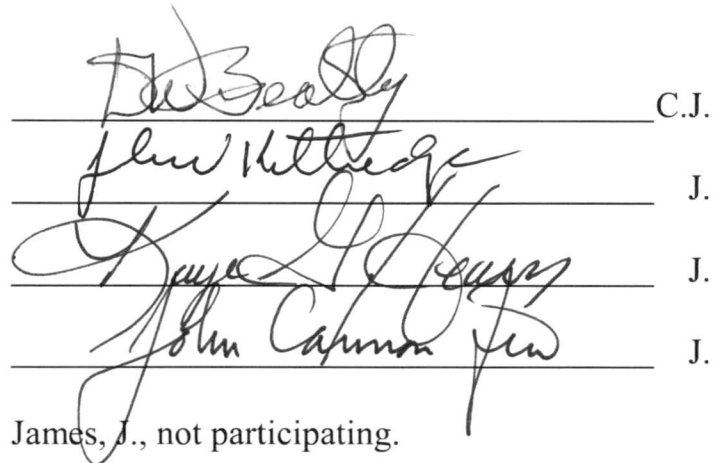 DW Beatty C.J.
John Kittredge J.
Kaye G Hearn J.
John Cannon Few J.
James, J., not participating.